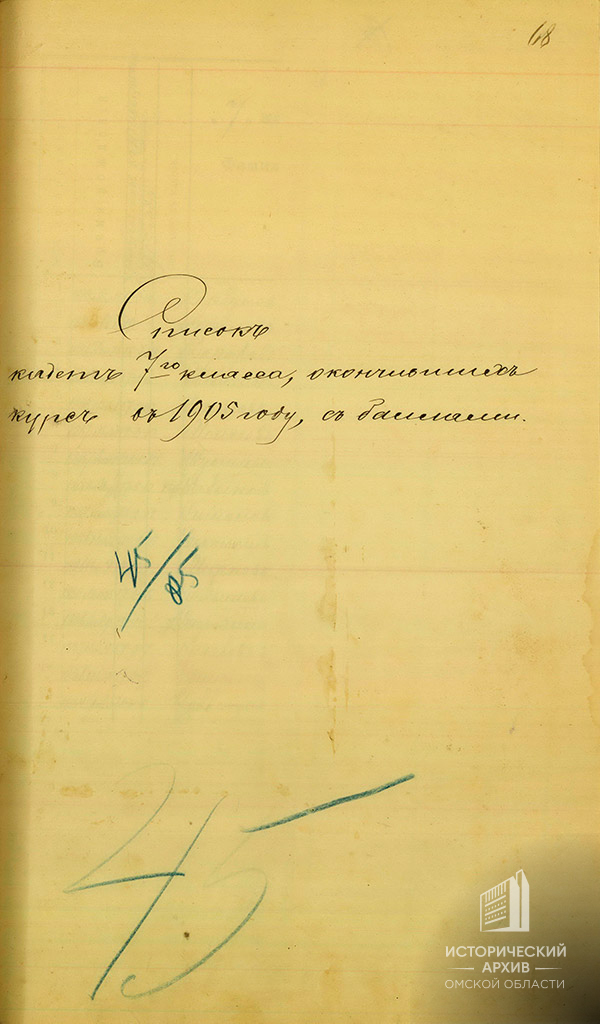 68
Списокъ
кадетъ 7го класса, окончившихъ
курсъ въ 1905 году, съ баллами.
45/05
45
ИСТОРИЧЕСКИЙ
АРХИВ
ОМСКОЙ ОБЛАСТИ